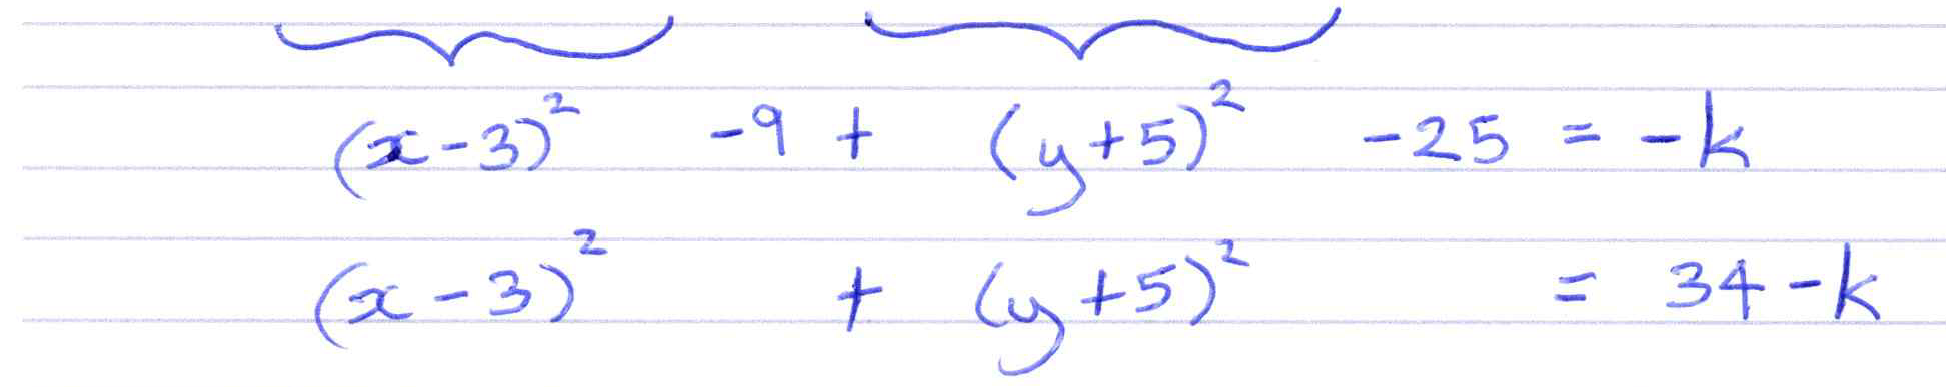 (x-3)² -9 + (y+5)² -25 = -k
(x-3)² + (y+5)² = 34-k